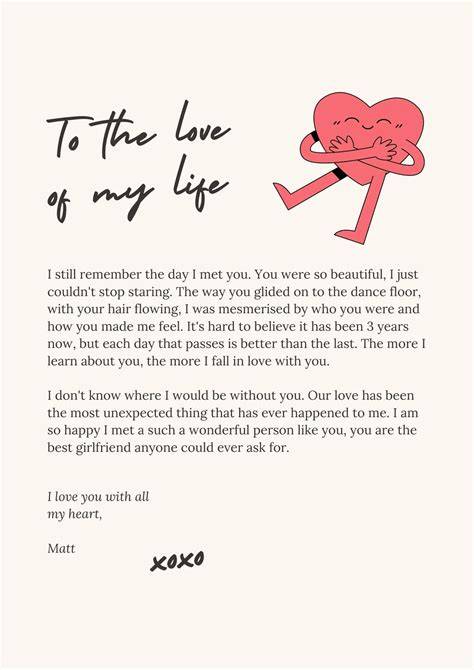 To the love
of my life
I still remember the day I met you. You were so beautiful, I just
couldn't stop staring. The way you glided on to the dance floor,
with your hair flowing, I was mesmerised by who you were and
how you made me feel. It's hard to believe it has been 3 years
now, but each day that passes is better than the last. The more I
learn about you, the more I fall in love with you.
I don't know where I would be without you. Our love has been
the most unexpected thing that has ever happened to me. I am
so happy I met a such a wonderful person like you, you are the
best girlfriend anyone could ever ask for.
I love you with all
my heart,
Matt
xoxo